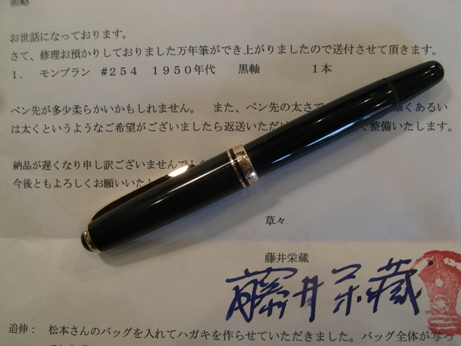 前略
お世話になっております。
さて、修理お預かりしておりました万年筆ができ上がりましたので送付させて頂きます。
1． モンブラン #254 1950年代 黒軸 1本
ペン先が多少柔らかいかもしれません。 また、ペン先の太さで くあるい
は太くというようなご希望がございましたら返送いただ て整備いたします。
納品が遅くなり申し訳ございませんでし
今後ともよろしくお願いいた
草々
藤井栄蔵
藤井栄蔵
追伸： 松本さんのバッグを入れてハガキを作らせていただきました。バッグ全体が写っ